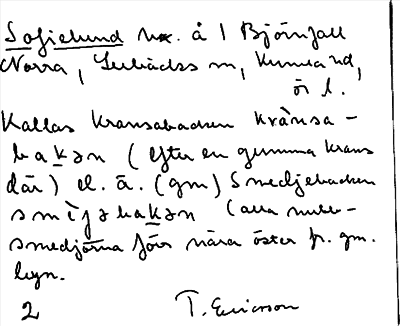 Sofielund hx. å 1 Björnfall
Norra, Lerbäcks sn, Kumla hd,
ör l.
Kallas Kransabacken krànsa-
bakən (efter en gumma Krans
där) el. ä. (gm) Smedjebacken
smìjəbakən (alla
smedjorna förr nära öster fr. gm.
byn.
2 T. Ericsson